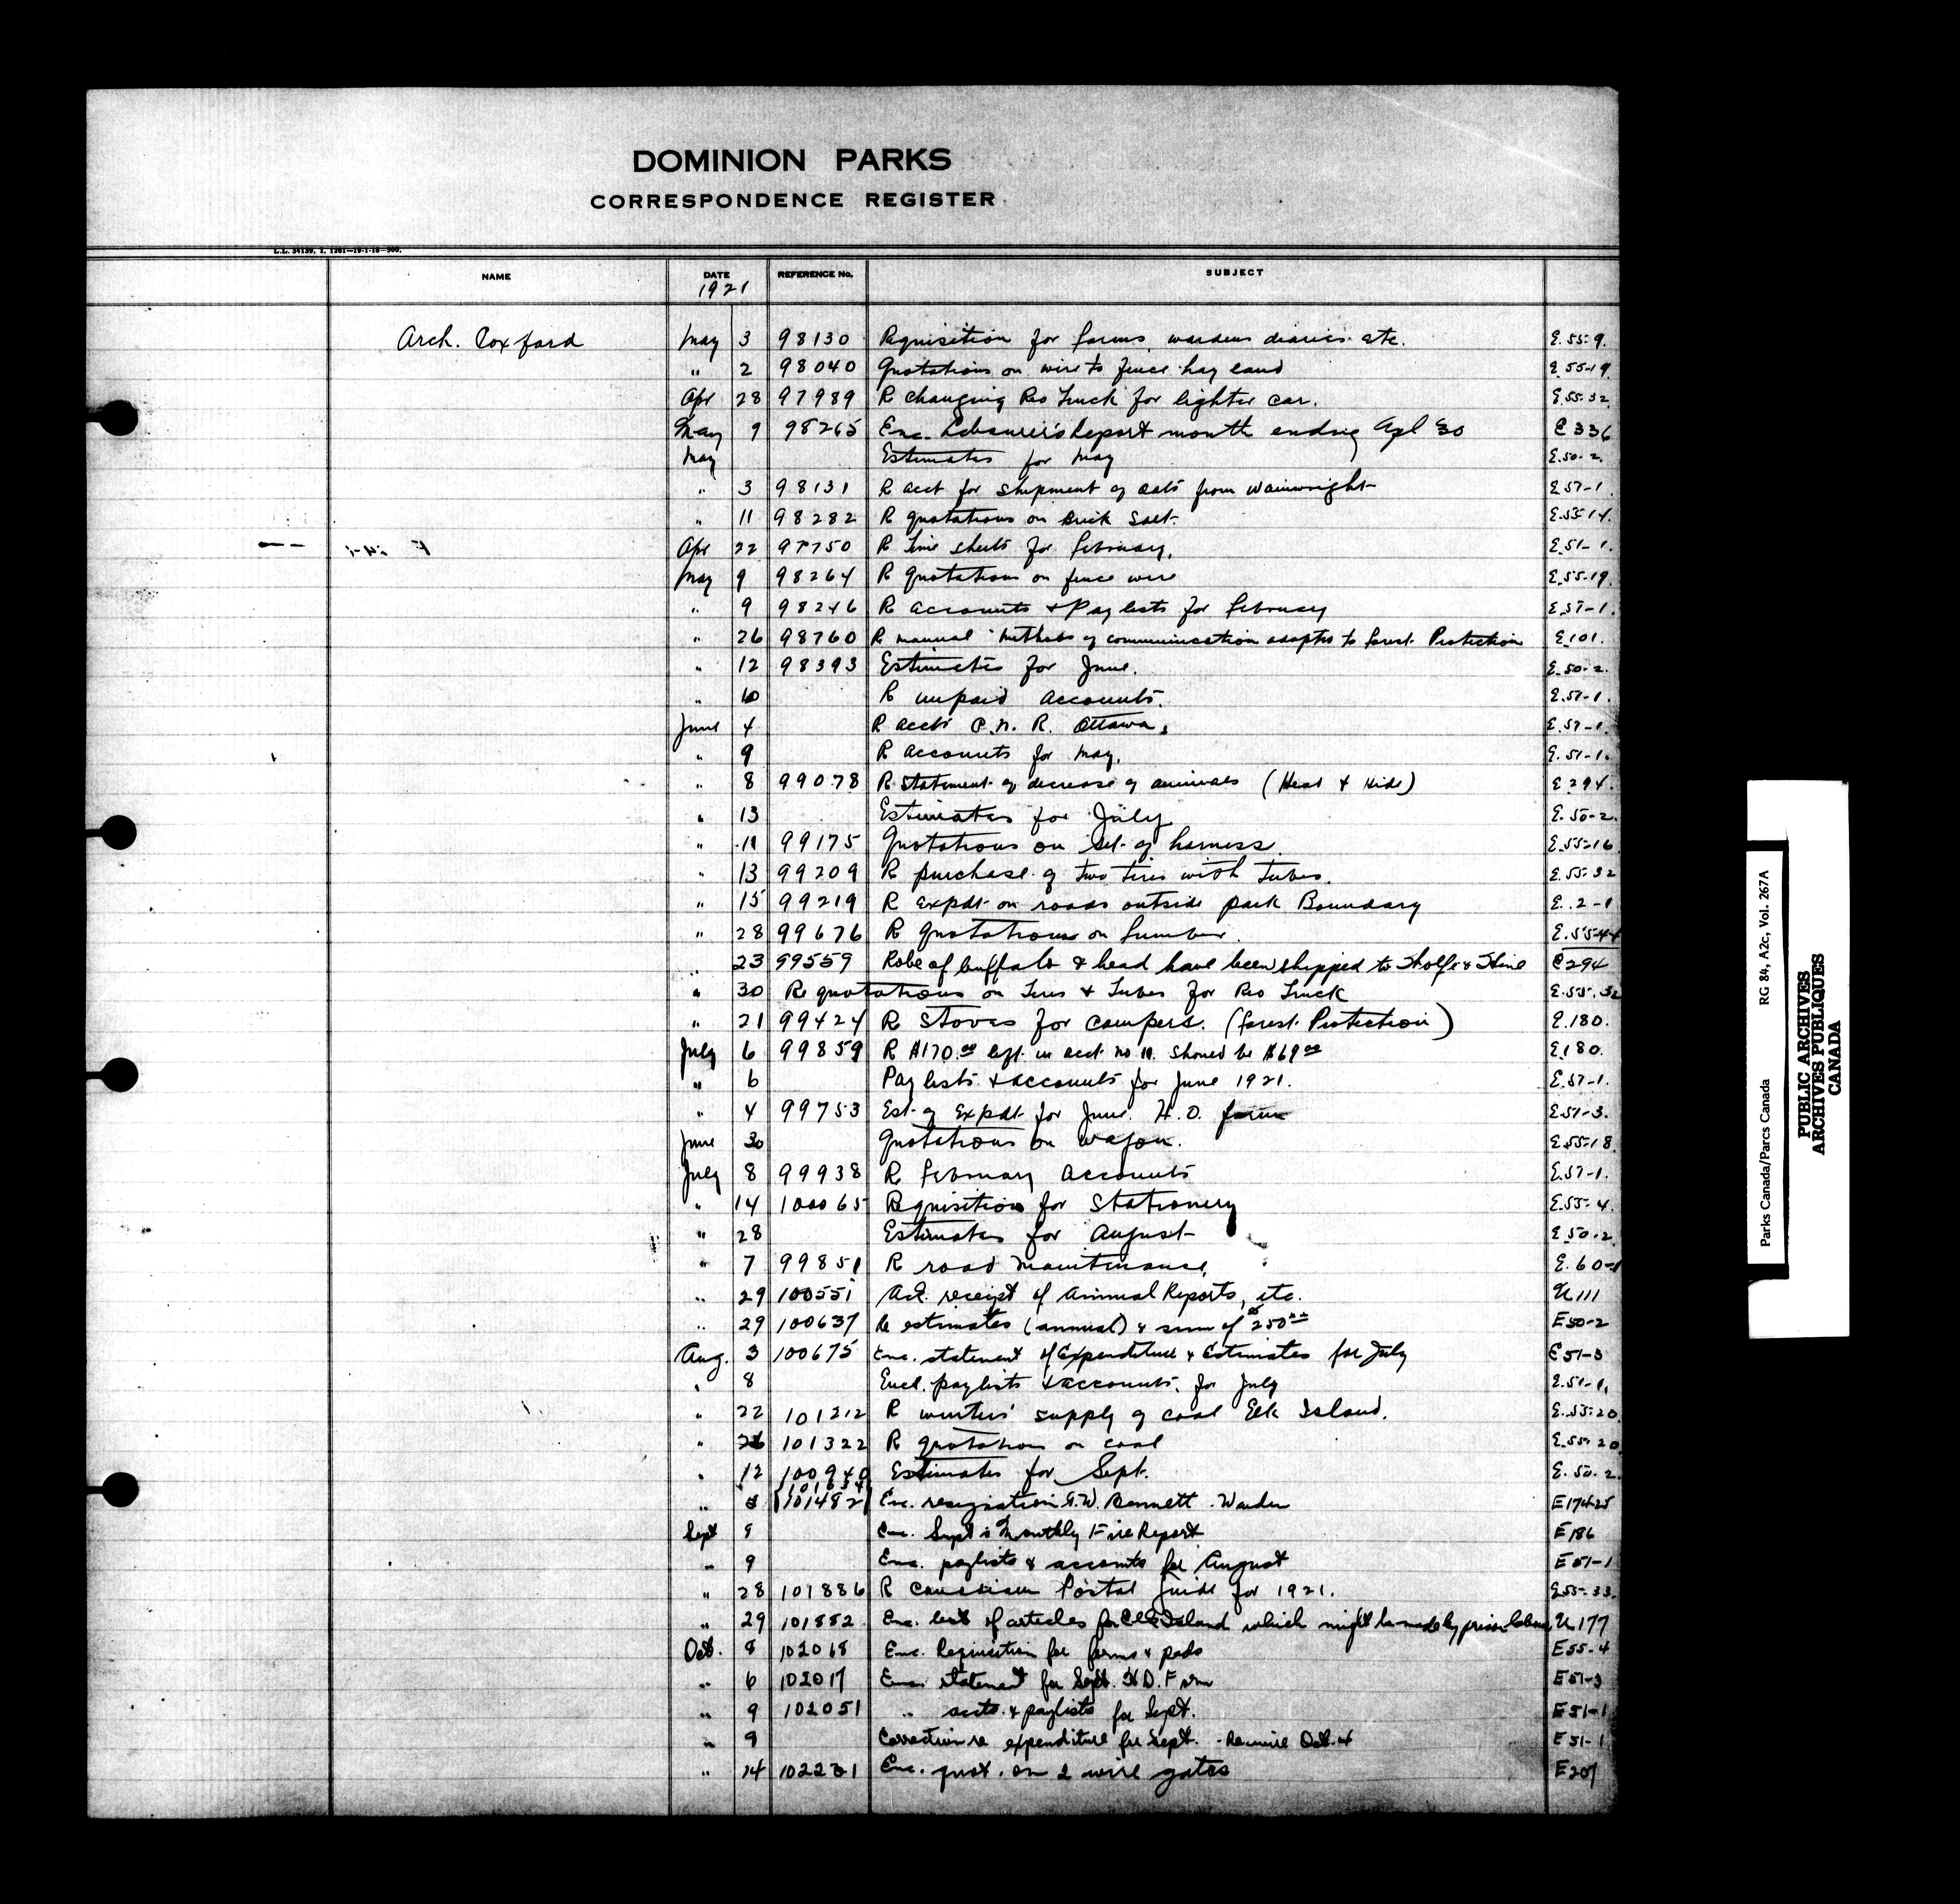 DOMINION PARKS
CORRESPONDENCE REGISTER
L.L. 34139. I. 1261—19-1-18—500.
NAME DATE REFERENCE No. SUBJECT
1921
Arch. Coxford May 3 98130 Requisition for forms, wardens diaries etc. E.55-9.
" 2 98040 Quotations on wire to fence hay land E.55-19.
Apr 28 97989 R changing Reo Truck for lighter car. E.55-32.
May 9 98265 Enc. Labourer's Report month ending Apl 30 E 336
May Estimates for May E.50-2.
" 3 98131 R acct for shipment of oats from Wainwright E.57-1.
" 11 98282 R quotations on Brick Salt. E.55-14.
Apr 22 97750 R Time sheets for February. E.51-1.
May 9 98264 R Quotations on fence wire E.55-19.
" 9 98246 R accounts & Pay lists for February E.57-1.
" 26 98760 R manual "methods of communication adapted to forest Protection E.101.
" 12 98393 Estimates for June. E.50-2.
" 10 R unpaid accounts. E.57-1.
June 4 R accts C.N.R. Ottawa. E.57-1.
" 9 R accounts for May. E.51-1.
" 8 99078 R Statement of decrease of animals (Head & Hide) E.294.
" 13 Estimates for July E.50-2.
" 11 99175 Quotations on set of harness. E.55-16.
" 13 99209 R purchase of two tires with tubes. E.55-32
" 15 99219 R expdt on roads outside park Boundary E.2-1
" 28 99676 R Quotations on lumber. E.55-44
" 23 99559 Robe of buffalo & head have been shipped to E294
" 30 Re quotations on Tires & Tubes for Reo Truck E.55.32
" 21 99424 R Stoves for campers. (forest Protection) E.180.
July 6 99859 R $170.00 left in acct no 11. should be $69.00 E.180.
" 6 Pay lists & accounts for June 1921. E.57-1.
" 4 99753 Est. of Expdt for June. H.O. form E.51-3.
June 30 Quotations on wagon. E.55-18.
July 8 99938 R February Accounts E.57-1.
" 14 100065 Requisition for Stationery E.55-4.
" 28 Estimates for August E.50-2.
" 7 99851 R road maintenance. E.60-1
" 29 100551 Ack. receipt of Annual Reports, etc. U 111
" 29 100637 Re estimates (annual) & sum of $250.00 E50-2
Aug. 3 100675 Enc. statement of Expenditure & Estimates for July E 51-3
" 8 Encl. paylists & accounts. for July E.51-1.
" 22 101212 R winters' supply of coal Elk Island. E.55-20.
" 26 101322 R quotation on coal E.55-20.
" 12 100940 Estimates for Sept. E.50.2.
101634
" 101482 Enc. resignation G.W. Bennett - Warden E174-25
Sept 8 Enc. Supt's Monthly Fire Report E186
" 9 Enc. paylists & accounts for August E51-1
" 28 101886 R Canadian Postal Guide for 1921. E.55-33.
" 29 101852 Enc. list of articles for Elk Island which might be made by prison labour U 177
Oct. 8 102068 Enc. Requisition for forms & pads E55-4
" 6 102017 Enc. statement for Sept. H.O. Form E51-3
" 9 102051 " accts. & paylists for Sept. E51-1
" 9 Correction re expenditure for Sept. - Oct. 4 E51-1
" 14 102231 Enc. quot. on 2 wire gates E207
Parks Canada/Parcs Canada RG 84, A2c, Vol. 267A
PUBLIC ARCHIVES
ARCHIVES PUBLIQUES
CANADA